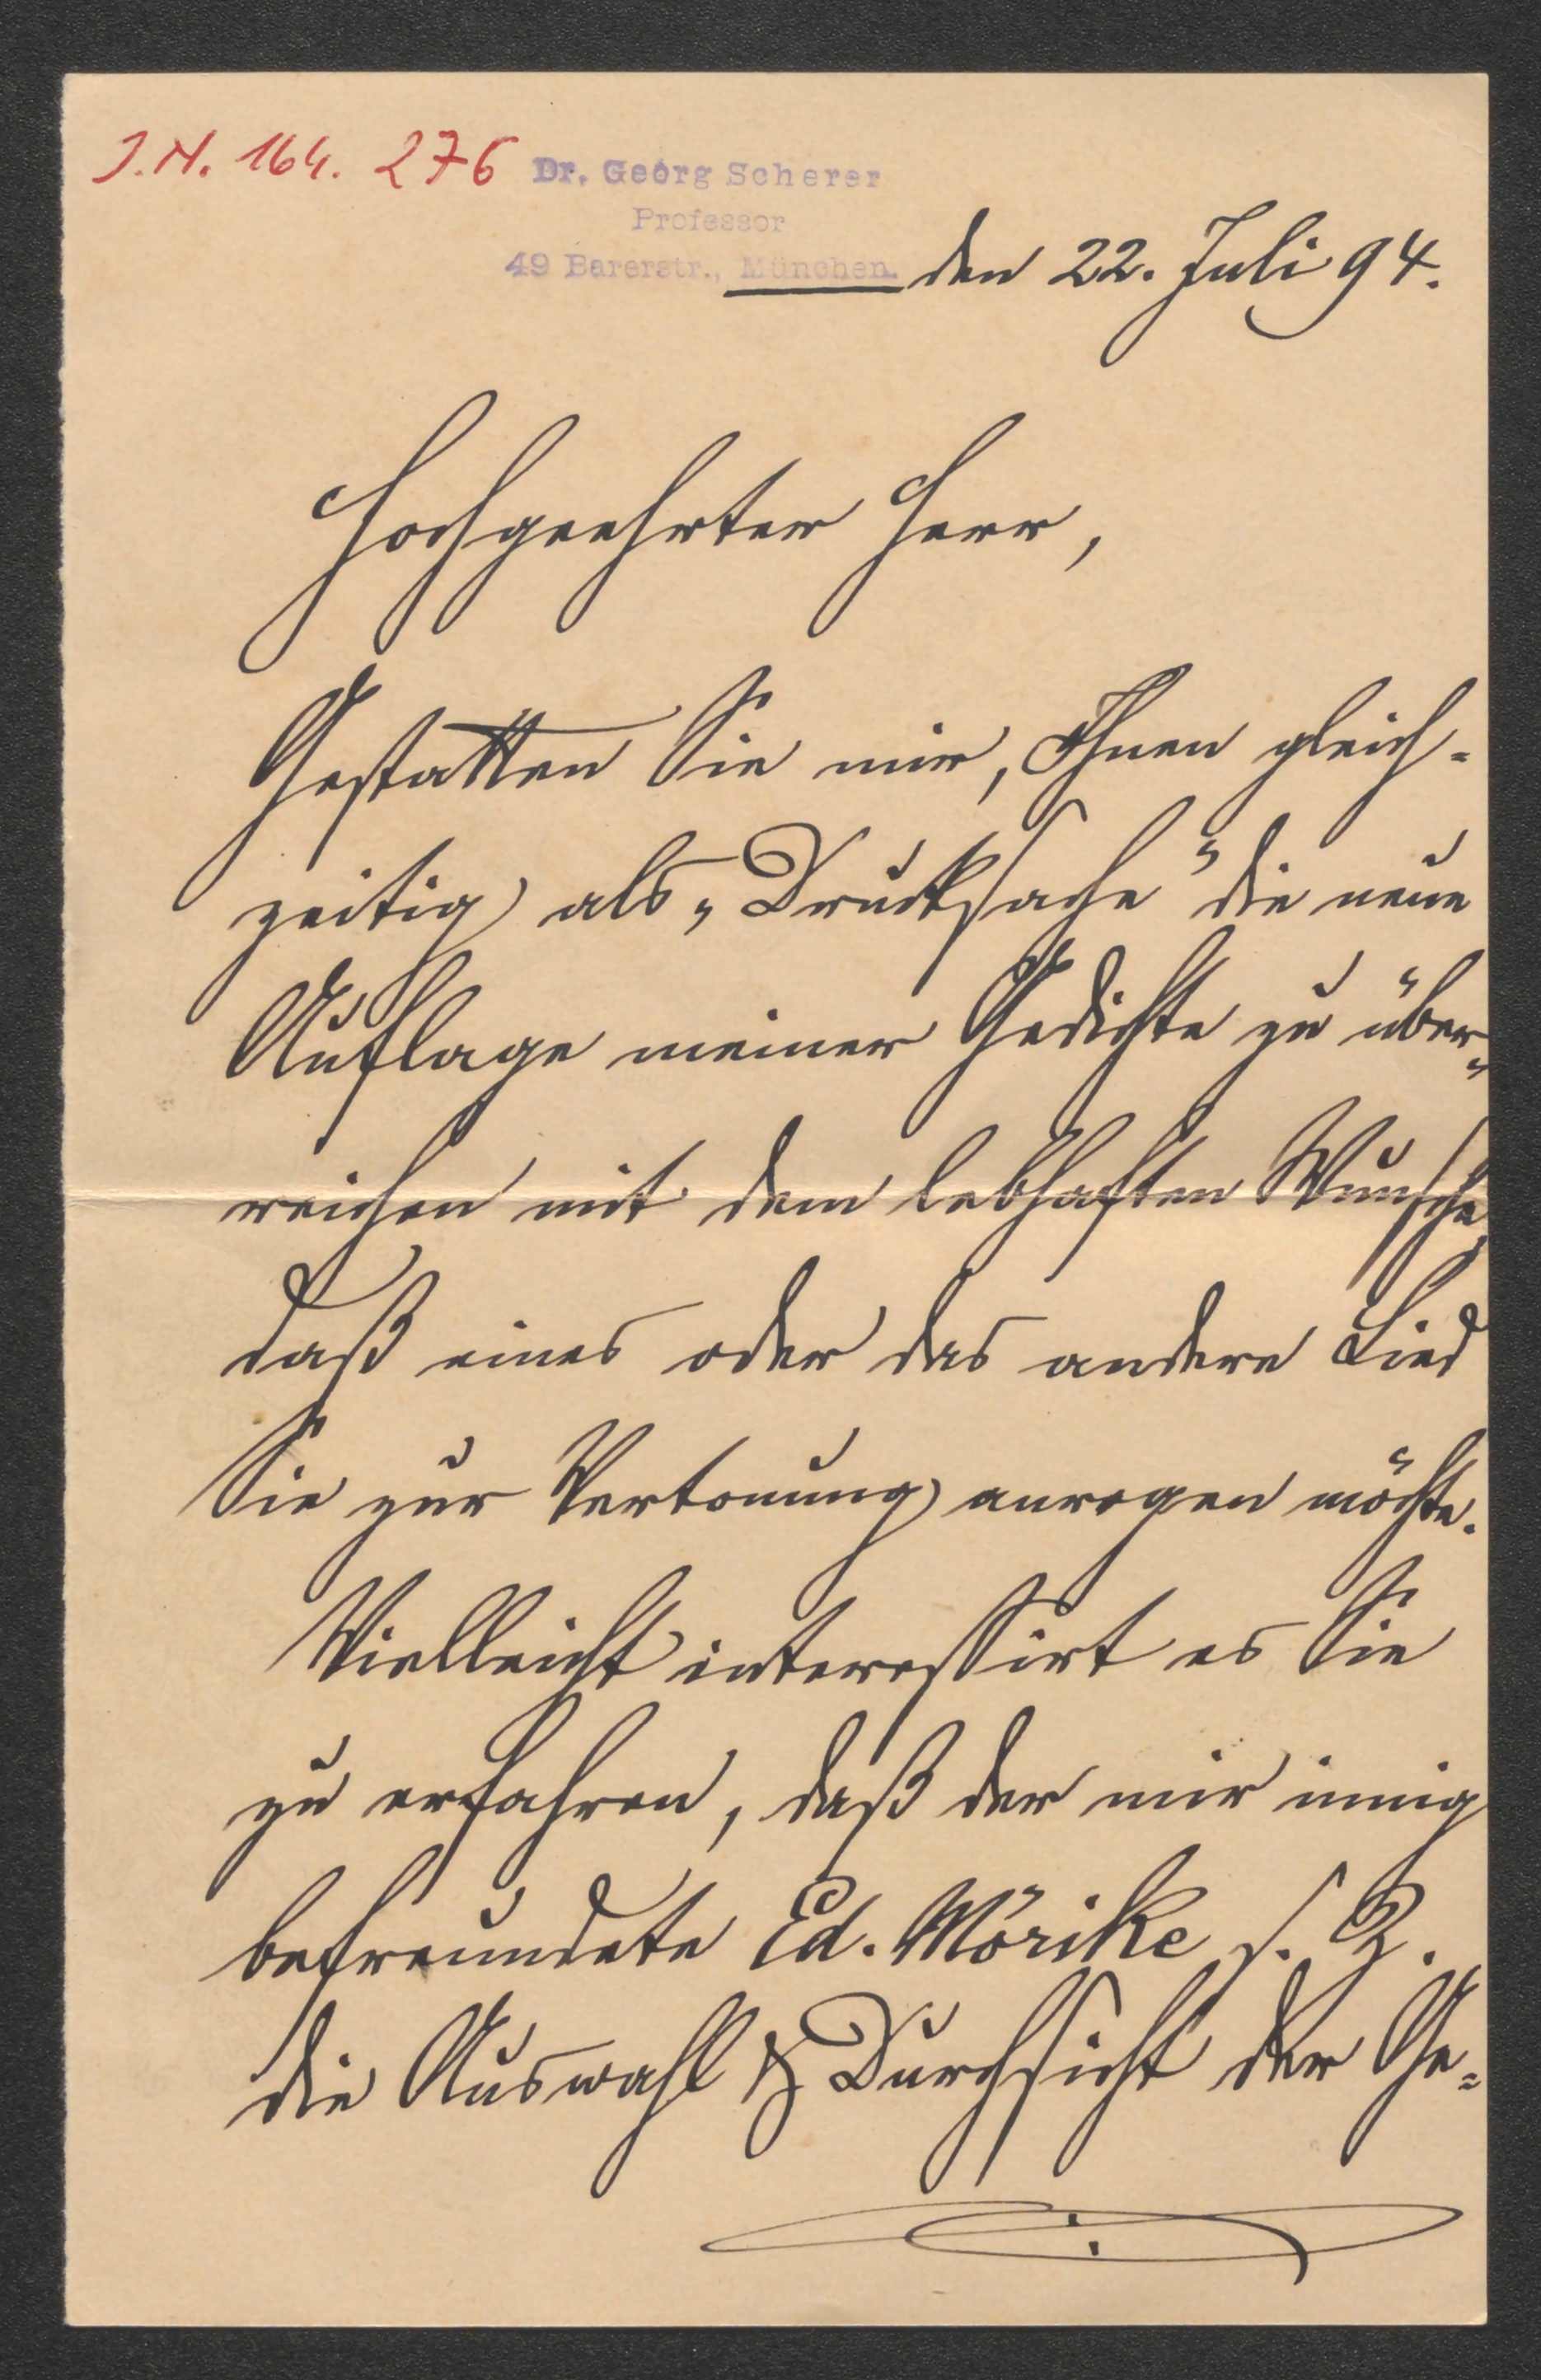 J.N. 164.276
Dr. Georg Scherer
Professor
49 Barerstr., München. den 22. Juli 94.
Hochgeehrter Herr,
Gestatten Sie mir, Ihnen gleich=
zeitig als „Drucksache“ die neue
Auflage meiner Gedichte zu über=
reichen mit dem lebhaften Wunsche,
daß eines oder das andere Lied
Sie zur Vertonung anregen möchte.
Vielleicht interessirt es Sie
zu erfahren, daß der mir innig
befreundete Ed. Mörike s. Z.
die Auswahl & Durchsicht der Ge=